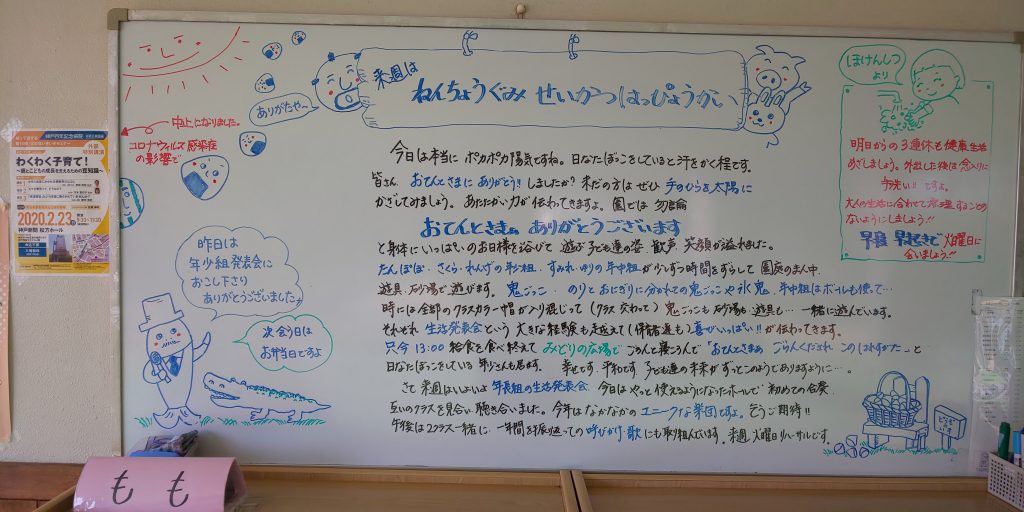 来週は
ねんちょうぐみ せいかつはっぴょうかい
ありがたや〜
中止になりました。
コロナウィルス感染症
の影響で
今日は本当に ポカポカ陽気ですね。日なたぼっこをしていると汗をかく程です。
皆さん おてんとさまに ありがとう!! しましたか？ まだの方は ぜひ 手のひらを太陽に
かざしてみましょう。あたたかい力が伝わってきますよ。園では 勿論
おてんとさまぁ ありがとうございます
と身体にいっぱいのお日様を浴びて 遊ぶ 子ども達の姿 歓声 笑顔が溢れました。
たんぽぽ・さくら・れんげの年少組・すみれ・ゆりの年中組が 少しずつ時間をずらして 園庭のまん中
遊具・砂場で遊びます。鬼ごっこ・のりとおにぎりに分かれての鬼ごっこや氷鬼・年中組はボールも使って…
時には全部のクラスカラー帽が入り混じって（クラス交わって）鬼ごっこも 砂場も 遊具も… 一緒に遊んでいます。
それぞれ 生活発表会という 大きな経験も超えて（保育者達も）喜びいっぱい!! が伝わってきます。
只今 13:00 給食を食べ終えて みどりの広場で ごろんと寝ころんで「おてんとさまぁ ごらんくだされ この
日なたぼっこをしている 年少さんも居ます。 幸せです。平和です。子ども達の未来が ずっとこのようでありますように…。
さて 来週はいよいよ 年長組の生活発表会 今日は やっと使えるようになったホールで 初めての合奏
互いのクラスを見合い 聴き合いました。今年はなかなかの ユニークな楽団ですよ。ぞうご期待!!
午後は2クラス一緒に 一年間を振り返っての 呼びかけ・歌 にも取り組んでいます。来週 火曜日リハーサルです。
ほけんしつ
より
明日からの3連休も健康生活
めざしましょう。外出した後は念入りに
手洗い!! ですよ。
大人の生活に合わせて無理することの
ないようにしましょう!!
早寝 早起きで 火曜日に
会いましょう!!
昨日は
年少組発表会に
おこし下さり
ありがとうございました
次会う日は
お弁当日ですよ
神戸百年記念病院
外部
特別講演
わくわく子育て！
2020.2.23
神戸新聞 松方ホール
もも